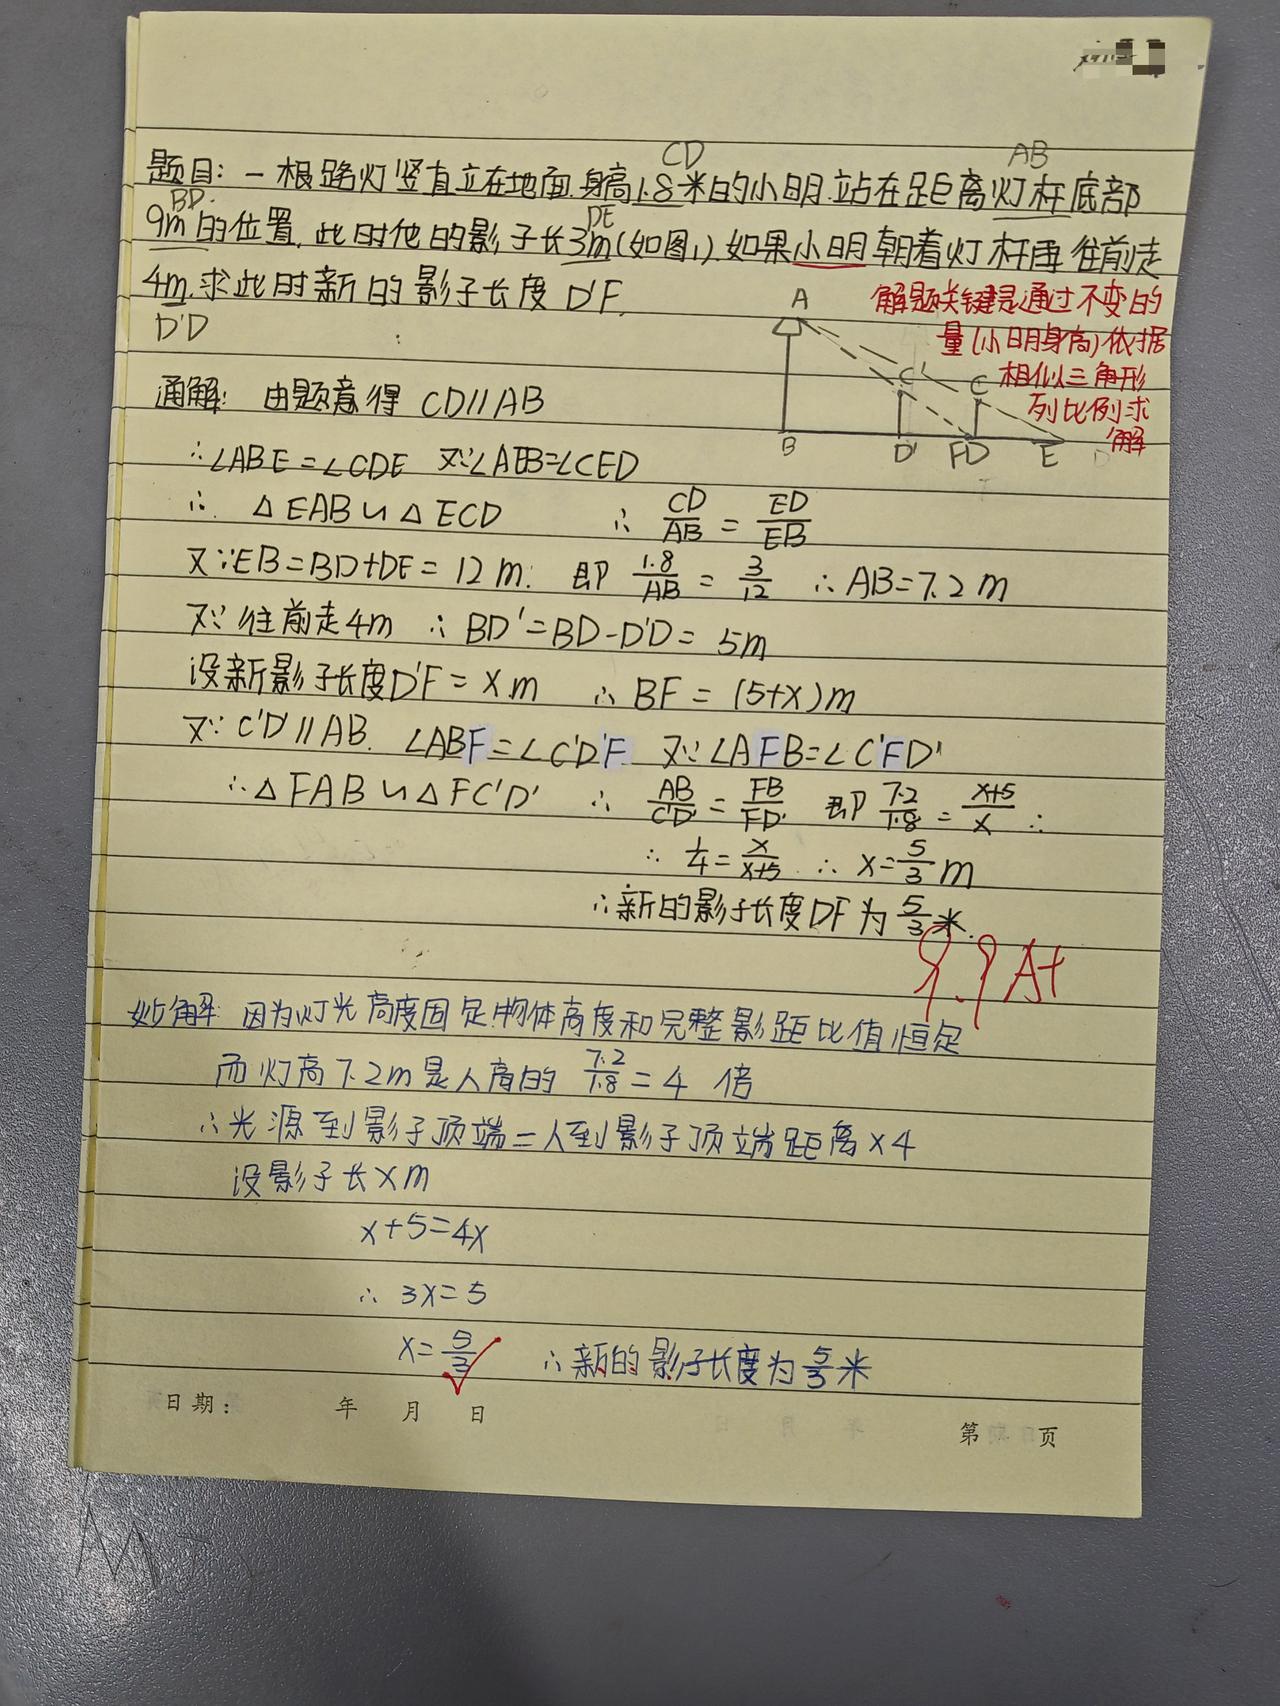 CD
AB
题目:一根路灯竖直立在地面.身高1.8米的小明.站在距离灯杆底部
BD.
DE
9m的位置.此时他的影子长3m(如图1).如果小明朝着灯杆再往前走
4m.求此时新的影子长度D'F.
D'D
解题关键是通过不变的
量(小明身高)依据
相似三角形
列比例求
解
A
C'
C
B
D'
FD
E
通解:由题意得 CD//AB
∴∠ABE=∠CDE 又∵∠AEB=∠CED
∴ △EAB∽△ECD ∴ CD/AB = ED/EB
又∵EB=BD+DE=12m. 即 1.8/AB = 3/12 ∴AB=7.2m
又∵往前走4m ∴BD'=BD-D'D=5m
设新影子长度D'F=xm ∴BF=(5+x)m
又∵C'D'//AB. ∠ABF=∠C'D'F 又∵∠AFB=∠C'FD'
∴△FAB∽△FC'D' ∴ AB/C'D' = FB/FD' 即 7.2/1.8 = x+5/x ∴
∴ 1/4 = x/x+5 ∴ x=5/3 m
∴新的影子长度DF为5/3米.
9.9 A+
妙解:因为灯光高度固定.物体高度和完整影距比值恒定
而灯高7.2m是人高的 7.2/1.8 =4 倍
∴光源到影子顶端=人到影子顶端距离×4
设影子长xm
x+5=4x
∴ 3x=5
x=5/3 ∴新的影子长度为5/3米
日期: 年 月 日
第 页